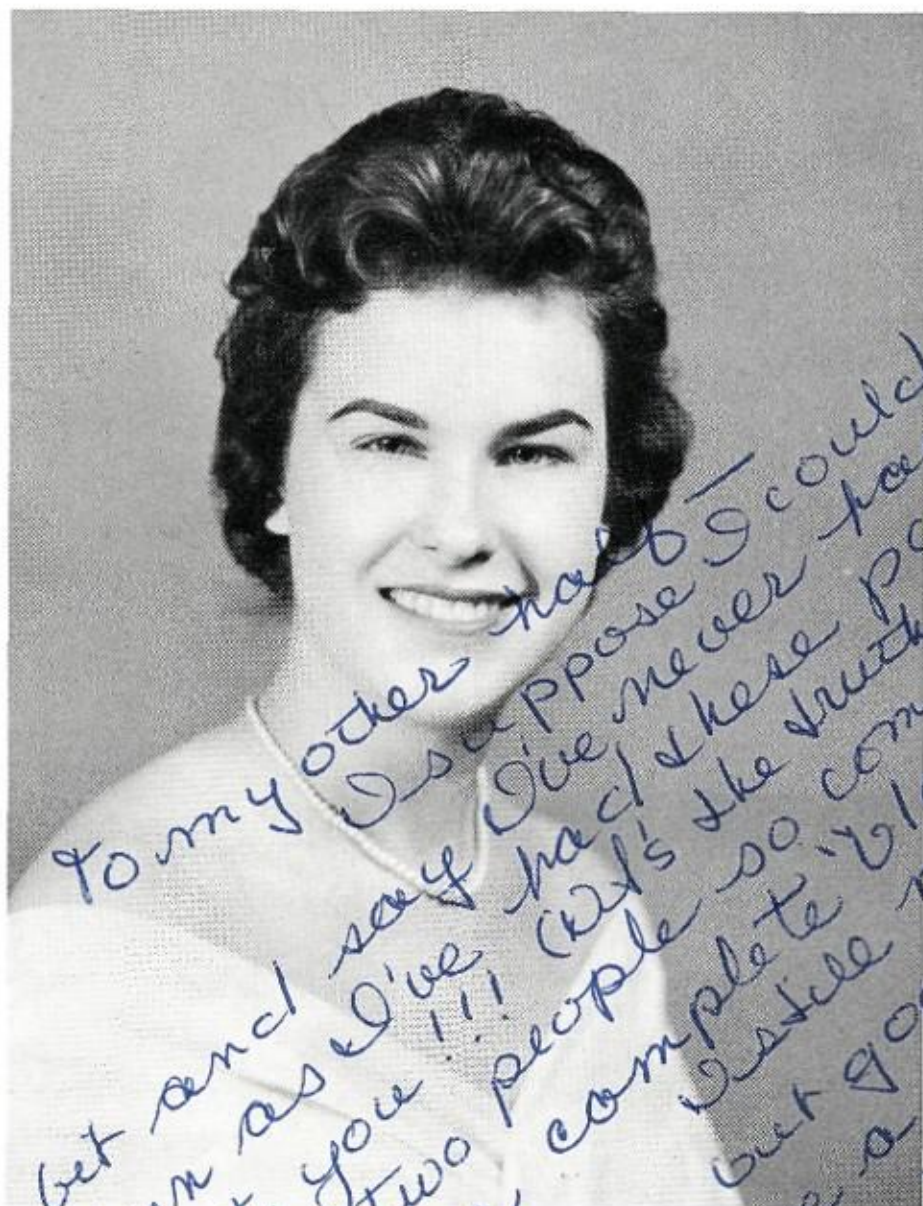 To my other half —
I suppose I could
sit and say I've never ha
as I've had these pa
you !!! (It's the truth
people so com
two complete "
I still
but go
a